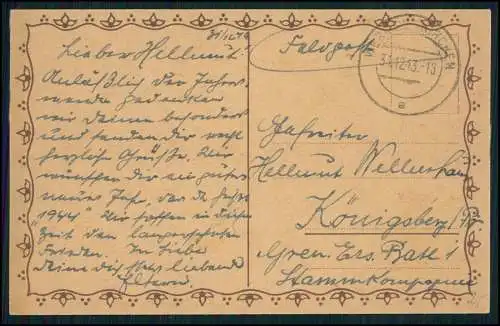 31/12 43
Lieber Hellmut!
Anläßlich der Jahres-
wende gedenken
wir Deiner besonders
und senden dir recht
herzliche Grüße. Wir
wünschen dir ein gutes
neues Jahr, das
"1944" Wir hoffen in dieser
Zeit den langersehnten
Frieden. In Liebe
Deine dich stets liebenden
Eltern.
Feldpost
31.12.43.-13
a
Gefreiter
Hellmut
Königsberg/Pr.
Gren. Ers. Batl 1
Stammkompanie